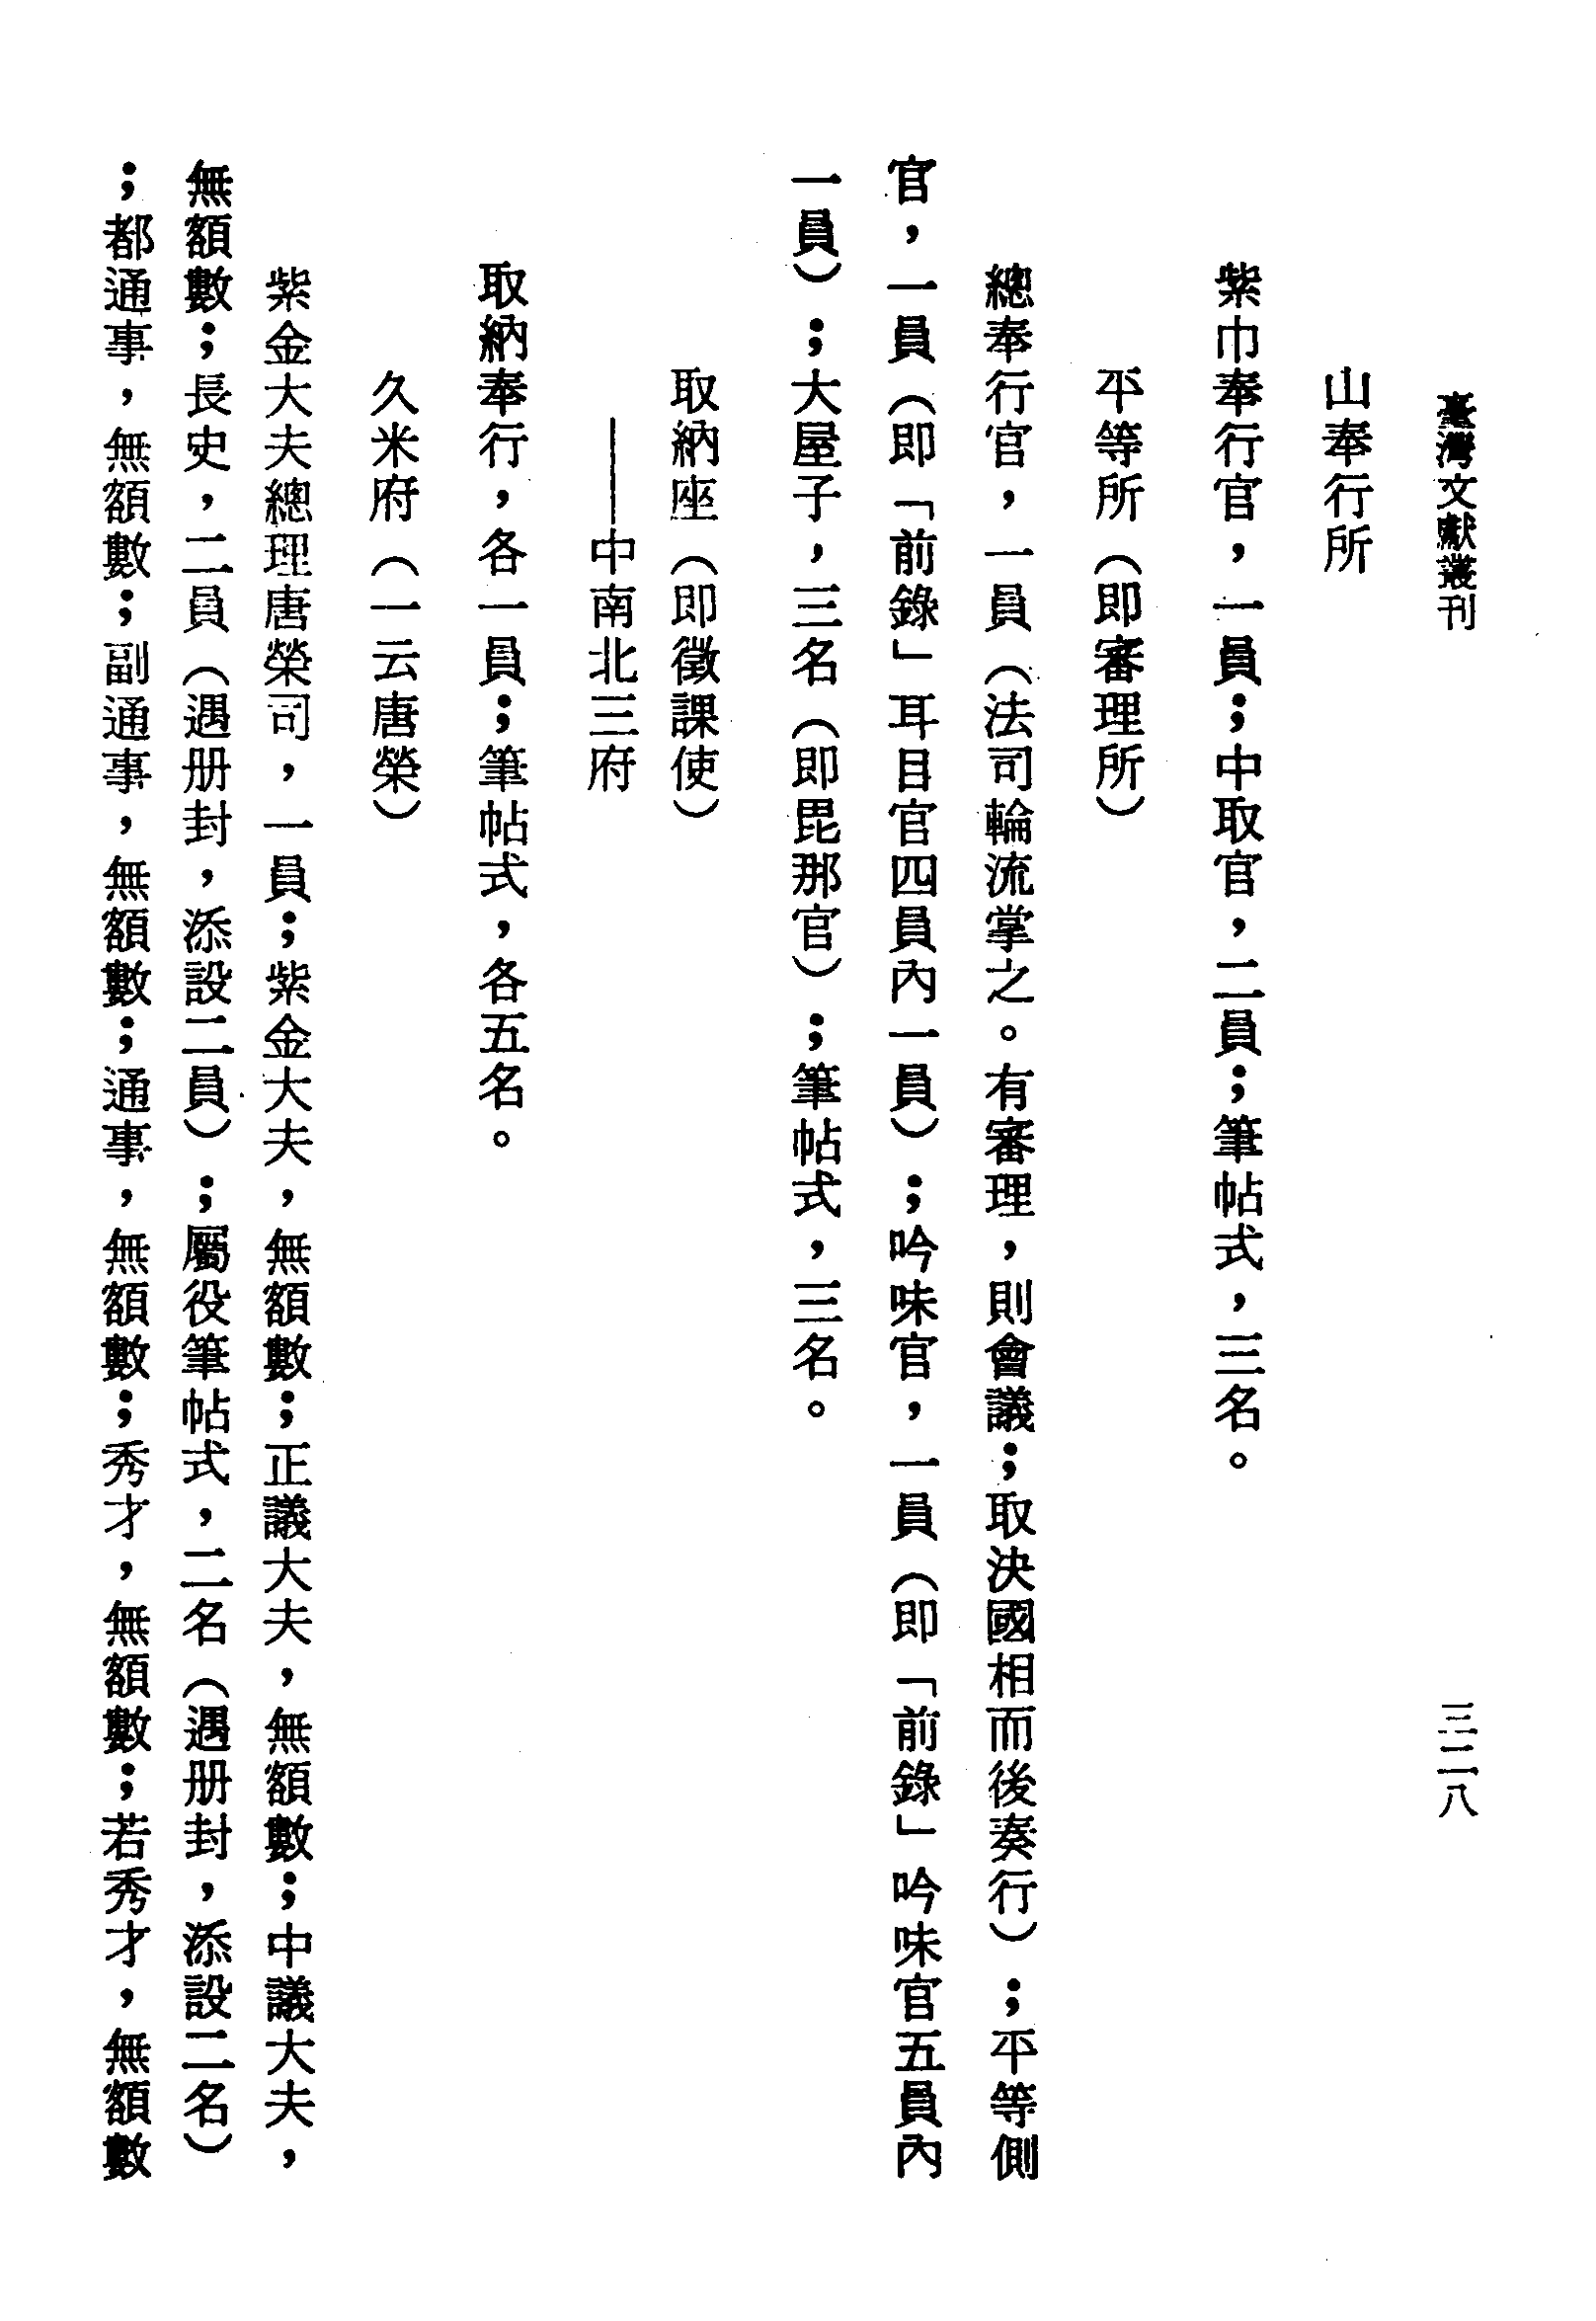 臺灣文獻叢刊　三二八
山奉行所
紫巾奉行官，一員；中取官，二員；筆帖式，三名。
平等所（即審理所）
總奉行官，一員（法司輪流掌之。有審理，則會議；取決國相而後奏行）；平等側
官，一員（即「前錄」耳目官四員內一員）；吟味官，一員（即「前錄」吟味官五員內
一員）；大屋子，三名（即毘那官）；筆帖式，三名。
取納座（即徵課使）
——中南北三府
取納奉行，各一員；筆帖式，各五名。
久米府（一云唐榮）
紫金大夫總理唐榮司，一員；紫金大夫，無額數；正議大夫，無額數；中議大夫，
無額數；長史，二員（遇册封，添設二員）；屬役筆帖式，二名（遇册封，添設二名）
；都通事，無額數；副通事，無額數；通事，無額數；秀才，無額數；若秀才，無額數